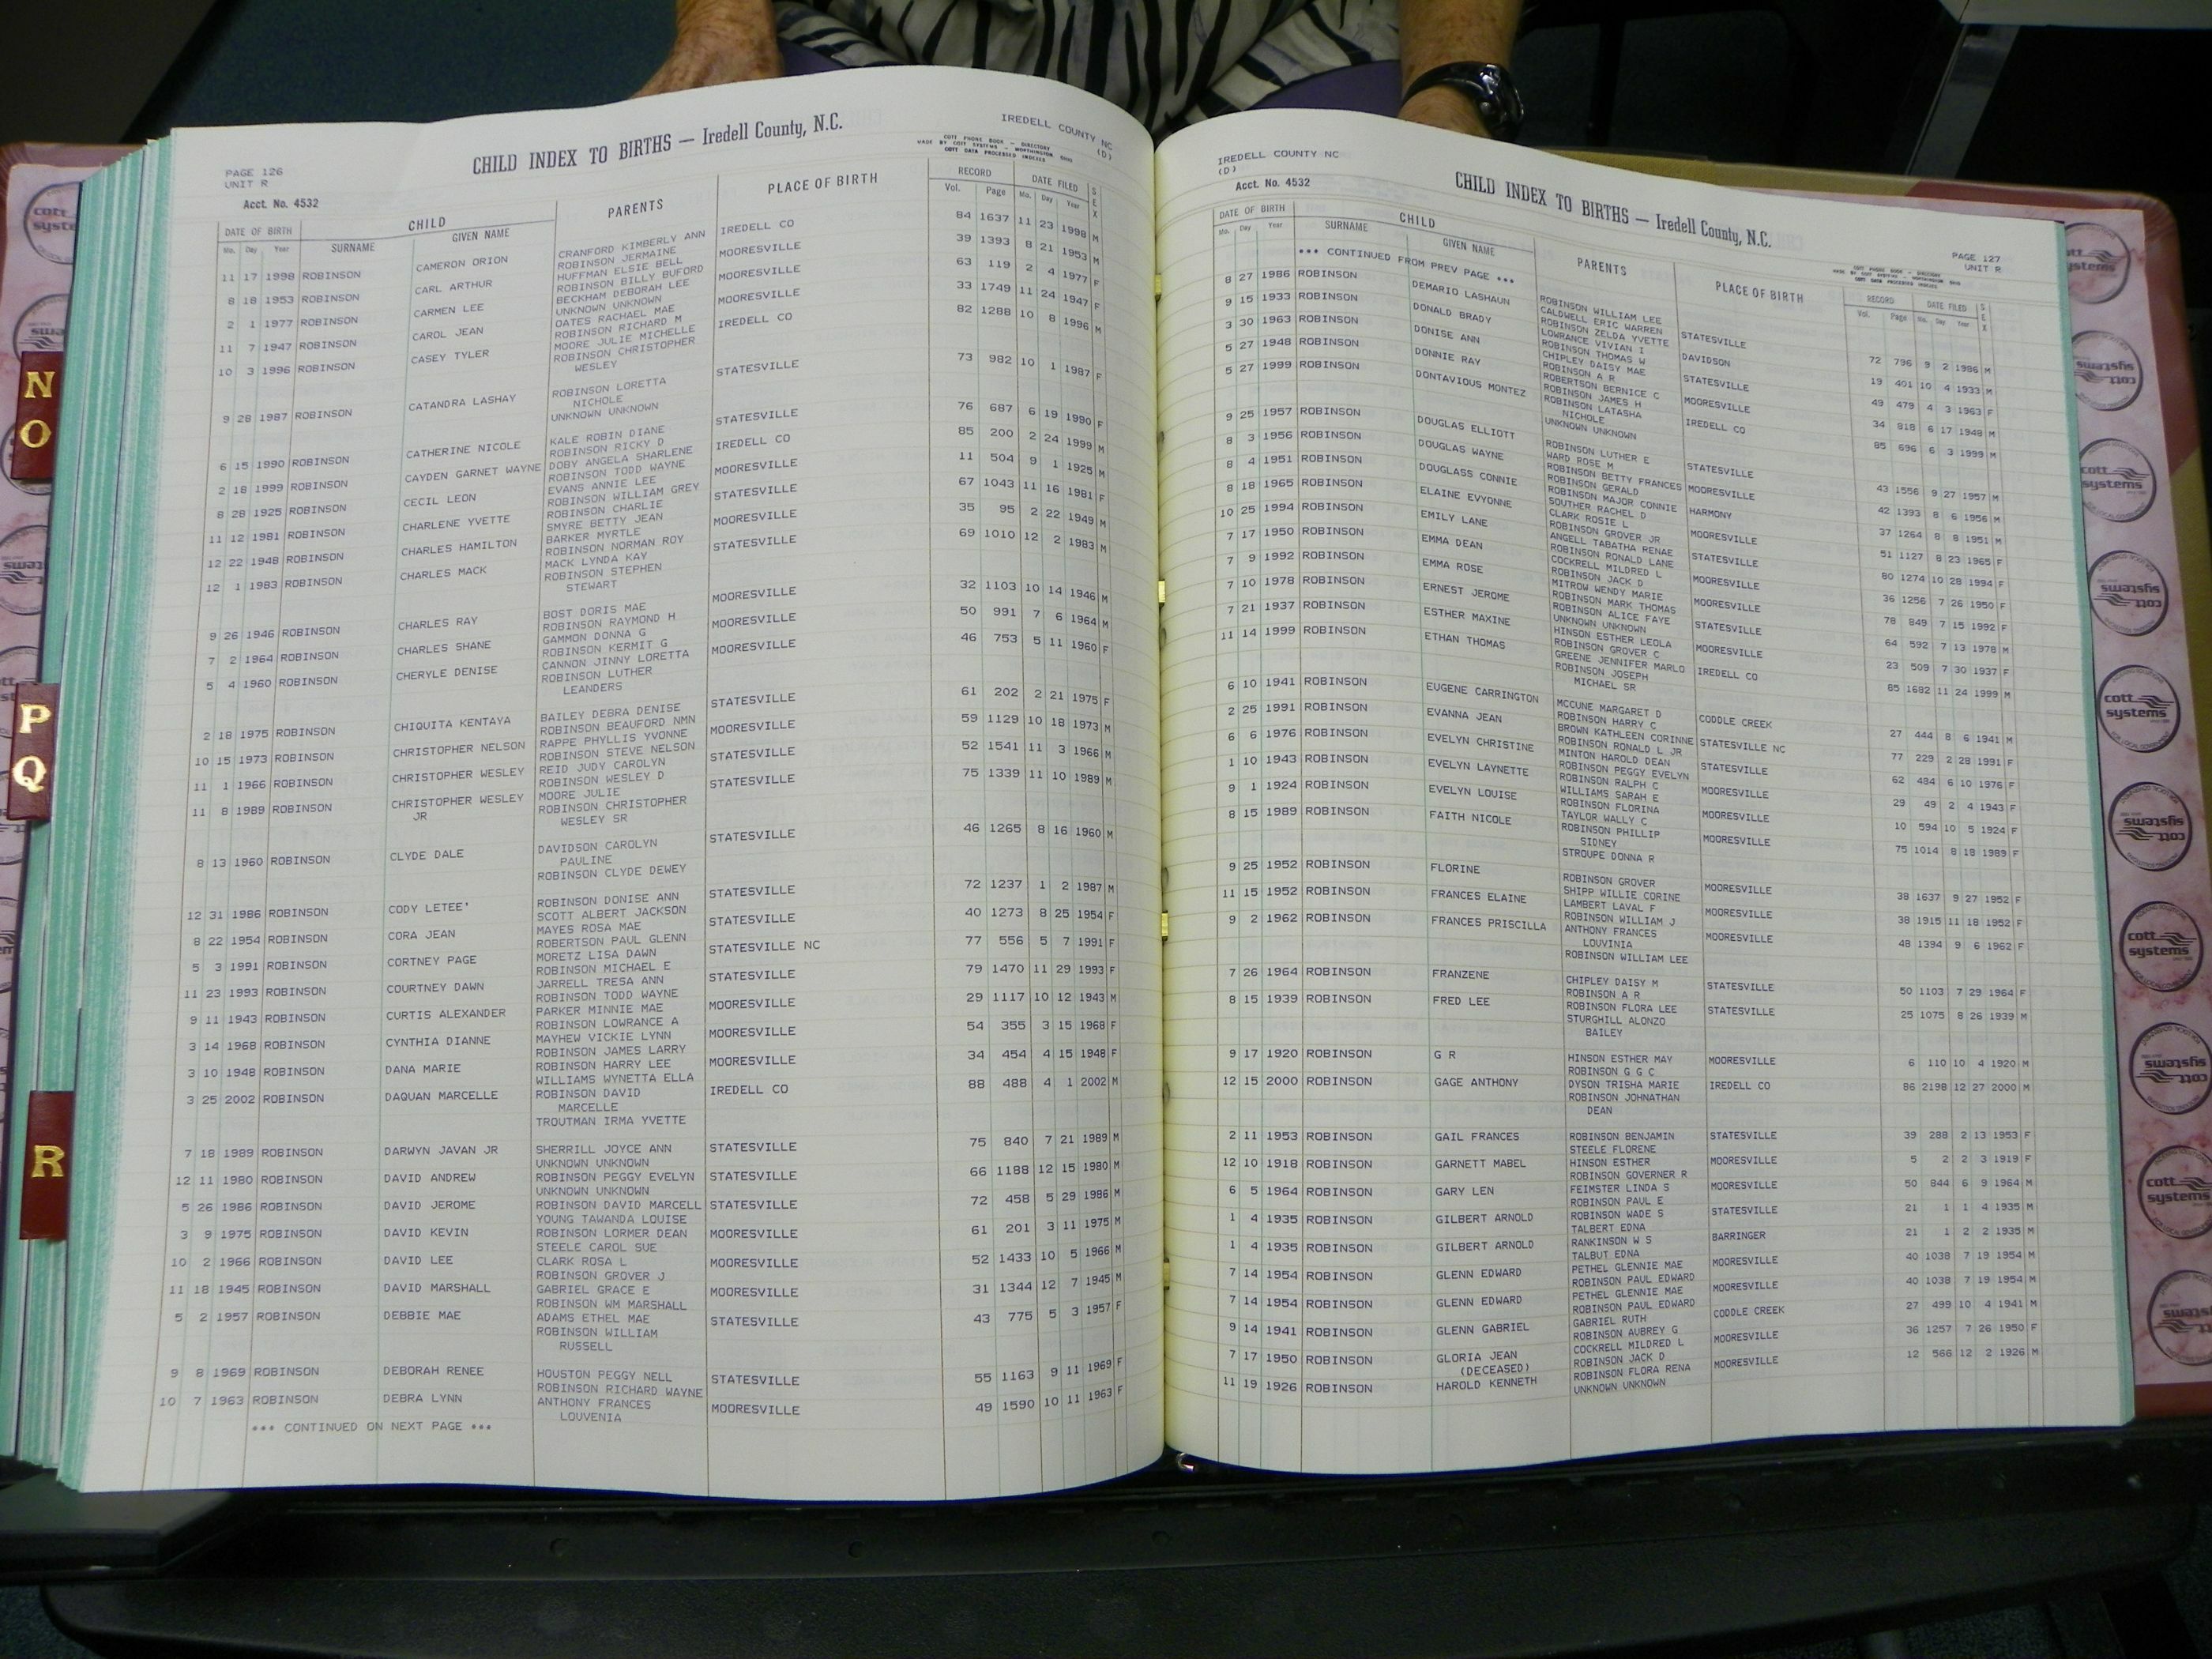 PAGE 126
UNIT R
CHILD INDEX TO BIRTHS — Iredell County, N.C.
IREDELL COUNTY NC
(D)
COTT PHONE BOOK - DIRECTORY
MADE BY COTT SYSTEMS - WORTHINGTON OHIO
COTT DATA PROCESSED INDEXES
Acct. No. 4532
DATE OF BIRTH CHILD PARENTS PLACE OF BIRTH RECORD DATE FILED SEX
Mo. Day Year SURNAME GIVEN NAME Vol. Page Mo. Day Year
11 17 1998 ROBINSON CAMERON ORION CRANFORD KIMBERLY ANN IREDELL CO 84 1637 11 23 1998 M
ROBINSON JERMAINE
8 18 1953 ROBINSON CARL ARTHUR HUFFMAN ELSIE BELL MOORESVILLE 39 1393 8 21 1953 M
ROBINSON BILLY BUFORD
2 1 1977 ROBINSON CARMEN LEE BECKHAM DEBORAH LEE MOORESVILLE 63 119 2 4 1977 F
UNKNOWN UNKNOWN
11 7 1947 ROBINSON CAROL JEAN OATES RACHAEL MAE MOORESVILLE 33 1749 11 24 1947 F
ROBINSON RICHARD M
10 3 1996 ROBINSON CASEY TYLER MOORE JULIE MICHELLE IREDELL CO 82 1288 10 8 1996 M
ROBINSON CHRISTOPHER
WESLEY
9 28 1987 ROBINSON CATANDRA LASHAY ROBINSON LORETTA STATESVILLE 73 982 10 1 1987 F
NICHOLE
UNKNOWN UNKNOWN
6 15 1990 ROBINSON CATHERINE NICOLE KALE ROBIN DIANE STATESVILLE 76 687 6 19 1990 F
ROBINSON RICKY D
2 18 1999 ROBINSON CAYDEN GARNET WAYNE DOBY ANGELA SHARLENE IREDELL CO 85 200 2 24 1999 M
ROBINSON TODD WAYNE
8 28 1925 ROBINSON CECIL LEON EVANS ANNIE LEE MOORESVILLE 11 504 9 1 1925 M
ROBINSON WILLIAM GREY
11 12 1981 ROBINSON CHARLENE YVETTE ROBINSON CHARLIE STATESVILLE 67 1043 11 16 1981 F
SMYRE BETTY JEAN
12 22 1948 ROBINSON CHARLES HAMILTON BARKER MYRTLE MOORESVILLE 35 95 2 22 1949 M
ROBINSON NORMAN ROY
12 1 1983 ROBINSON CHARLES MACK MACK LYNDA KAY STATESVILLE 69 1010 12 2 1983 M
ROBINSON STEPHEN
STEWART
9 26 1946 ROBINSON CHARLES RAY BOST DORIS MAE MOORESVILLE 32 1103 10 14 1946 M
ROBINSON RAYMOND H
7 2 1964 ROBINSON CHARLES SHANE GAMMON DONNA G MOORESVILLE 50 991 7 6 1964 M
ROBINSON KERMIT G
5 4 1960 ROBINSON CHERYLE DENISE CANNON JINNY LORETTA MOORESVILLE 46 753 5 11 1960 F
ROBINSON LUTHER
LEANDERS
2 18 1975 ROBINSON CHIQUITA KENTAYA BAILEY DEBRA DENISE STATESVILLE 61 202 2 21 1975 F
ROBINSON BEAUFORD NMN
10 15 1973 ROBINSON CHRISTOPHER NELSON RAPPE PHYLLIS YVONNE MOORESVILLE 59 1129 10 18 1973 M
ROBINSON STEVE NELSON
11 1 1966 ROBINSON CHRISTOPHER WESLEY REID JUDY CAROLYN STATESVILLE 52 1541 11 3 1966 M
ROBINSON WESLEY D
11 8 1989 ROBINSON CHRISTOPHER WESLEY MOORE JULIE STATESVILLE 75 1339 11 10 1989 M
JR ROBINSON CHRISTOPHER
WESLEY SR
8 13 1960 ROBINSON CLYDE DALE DAVIDSON CAROLYN STATESVILLE 46 1265 8 16 1960 M
PAULINE
ROBINSON CLYDE DEWEY
12 31 1986 ROBINSON CODY LETEE' ROBINSON DONISE ANN STATESVILLE 72 1237 1 2 1987 M
SCOTT ALBERT JACKSON
8 22 1954 ROBINSON CORA JEAN MAYES ROSA MAE STATESVILLE 40 1273 8 25 1954 F
ROBERTSON PAUL GLENN
5 3 1991 ROBINSON CORTNEY PAGE MORETZ LISA DAWN STATESVILLE NC 77 556 5 7 1991 F
ROBINSON MICHAEL E
11 23 1993 ROBINSON COURTNEY DAWN JARRELL TRESA ANN STATESVILLE 79 1470 11 29 1993 F
ROBINSON TODD WAYNE
9 11 1943 ROBINSON CURTIS ALEXANDER PARKER MINNIE MAE MOORESVILLE 29 1117 10 12 1943 M
ROBINSON LOWRANCE A
3 14 1968 ROBINSON CYNTHIA DIANNE MAYHEW VICKIE LYNN MOORESVILLE 54 355 3 15 1968 F
ROBINSON JAMES LARRY
3 10 1948 ROBINSON DANA MARIE ROBINSON HARRY LEE MOORESVILLE 34 454 4 15 1948 F
WILLIAMS WYNETTA ELLA
3 25 2002 ROBINSON DAQUAN MARCELLE ROBINSON DAVID IREDELL CO 88 488 4 1 2002 M
MARCELLE
TROUTMAN IRMA YVETTE
7 18 1989 ROBINSON DARWYN JAVAN JR SHERRILL JOYCE ANN STATESVILLE 75 840 7 21 1989 M
UNKNOWN UNKNOWN
12 11 1980 ROBINSON DAVID ANDREW ROBINSON PEGGY EVELYN STATESVILLE 66 1188 12 15 1980 M
UNKNOWN UNKNOWN
5 26 1986 ROBINSON DAVID JEROME ROBINSON DAVID MARCELL STATESVILLE 72 458 5 29 1986 M
YOUNG TAWANDA LOUISE
3 9 1975 ROBINSON DAVID KEVIN ROBINSON LORMER DEAN MOORESVILLE 61 201 3 11 1975 M
STEELE CAROL SUE
10 2 1966 ROBINSON DAVID LEE CLARK ROSA L MOORESVILLE 52 1433 10 5 1966 M
ROBINSON GROVER J
11 18 1945 ROBINSON DAVID MARSHALL GABRIEL GRACE E MOORESVILLE 31 1344 12 7 1945 M
ROBINSON WM MARSHALL
5 2 1957 ROBINSON DEBBIE MAE ADAMS ETHEL MAE STATESVILLE 43 775 5 3 1957 F
ROBINSON WILLIAM
RUSSELL
9 8 1969 ROBINSON DEBORAH RENEE HOUSTON PEGGY NELL STATESVILLE 55 1163 9 11 1969 F
ROBINSON RICHARD WAYNE
10 7 1963 ROBINSON DEBRA LYNN ANTHONY FRANCES MOORESVILLE 49 1590 10 11 1963 F
LOUVENIA
*** CONTINUED ON NEXT PAGE ***
IREDELL COUNTY NC
(D)
Acct. No. 4532
CHILD INDEX TO BIRTHS — Iredell County, N.C.
PAGE 127
UNIT R
COTT PHONE BOOK - DIRECTORY
MADE BY COTT SYSTEMS - WORTHINGTON OHIO
COTT DATA PROCESSED INDEXES
DATE OF BIRTH CHILD PARENTS PLACE OF BIRTH RECORD DATE FILED SEX
Mo. Day Year SURNAME GIVEN NAME Vol. Page Mo. Day Year
*** CONTINUED FROM PREV PAGE ***
ROBINSON WILLIAM LEE
8 27 1986 ROBINSON DEMARIO LASHAUN CALDWELL ERIC WARREN STATESVILLE 72 796 9 2 1986 M
ROBINSON ZELDA YVETTE
9 15 1933 ROBINSON DONALD BRADY LOWRANCE VIVIAN I DAVIDSON 19 401 10 4 1933 M
ROBINSON THOMAS W
3 30 1963 ROBINSON DONISE ANN CHIPLEY DAISY MAE STATESVILLE 49 479 4 3 1963 F
ROBINSON A R
5 27 1948 ROBINSON DONNIE RAY ROBERTSON BERNICE C MOORESVILLE 34 818 6 17 1948 M
ROBINSON JAMES H
5 27 1999 ROBINSON DONTAVIOUS MONTEZ ROBINSON LATASHA IREDELL CO 85 696 6 3 1999 M
NICHOLE
UNKNOWN UNKNOWN
9 25 1957 ROBINSON DOUGLAS ELLIOTT ROBINSON LUTHER E STATESVILLE 43 1556 9 27 1957 M
WARD ROSE M
8 3 1956 ROBINSON DOUGLAS WAYNE ROBINSON BETTY FRANCES MOORESVILLE 42 1393 8 6 1956 M
ROBINSON GERALD
8 4 1951 ROBINSON DOUGLASS CONNIE ROBINSON MAJOR CONNIE HARMONY 37 1264 8 8 1951 M
SOUTHER RACHEL D
8 18 1965 ROBINSON ELAINE EVYONNE CLARK ROSIE L MOORESVILLE 51 1127 8 23 1965 F
ROBINSON GROVER JR
10 25 1994 ROBINSON EMILY LANE ANGELL TABATHA RENAE STATESVILLE 80 1274 10 28 1994 F
ROBINSON RONALD LANE
7 17 1950 ROBINSON EMMA DEAN COCKRELL MILDRED L MOORESVILLE 36 1256 7 26 1950 F
ROBINSON JACK D
7 9 1992 ROBINSON EMMA ROSE MITROW WENDY MARIE MOORESVILLE 78 849 7 15 1992 F
ROBINSON MARK THOMAS
7 10 1978 ROBINSON ERNEST JEROME ROBINSON ALICE FAYE STATESVILLE 64 592 7 13 1978 M
UNKNOWN UNKNOWN
7 21 1937 ROBINSON ESTHER MAXINE HINSON ESTHER LEOLA MOORESVILLE 23 509 7 30 1937 F
ROBINSON GROVER C
11 14 1999 ROBINSON ETHAN THOMAS GREENE JENNIFER MARLO IREDELL CO 85 1682 11 24 1999 M
ROBINSON JOSEPH
MICHAEL SR
6 10 1941 ROBINSON EUGENE CARRINGTON MCCUNE MARGARET D CODDLE CREEK 27 444 8 6 1941 M
ROBINSON HARRY C
2 25 1991 ROBINSON EVANNA JEAN BROWN KATHLEEN CORINNE STATESVILLE NC 77 229 2 28 1991 F
ROBINSON RONALD L JR
6 6 1976 ROBINSON EVELYN CHRISTINE MINTON HAROLD DEAN STATESVILLE 62 484 6 10 1976 F
ROBINSON PEGGY EVELYN
1 10 1943 ROBINSON EVELYN LAYNETTE ROBINSON RALPH C MOORESVILLE 29 49 2 4 1943 F
WILLIAMS SARAH E
9 1 1924 ROBINSON EVELYN LOUISE ROBINSON FLORINA MOORESVILLE 10 594 10 5 1924 F
TAYLOR WALLY C
8 15 1989 ROBINSON FAITH NICOLE ROBINSON PHILLIP MOORESVILLE 75 1014 8 18 1989 F
SIDNEY
STROUPE DONNA R
9 25 1952 ROBINSON FLORINE ROBINSON GROVER MOORESVILLE 38 1637 9 27 1952 F
SHIPP WILLIE CORINE
11 15 1952 ROBINSON FRANCES ELAINE LAMBERT LAVAL F MOORESVILLE 38 1915 11 18 1952 F
ROBINSON WILLIAM J
9 2 1962 ROBINSON FRANCES PRISCILLA ANTHONY FRANCES MOORESVILLE 48 1394 9 6 1962 F
LOUVINIA
ROBINSON WILLIAM LEE
7 26 1964 ROBINSON FRANZENE CHIPLEY DAISY M STATESVILLE 50 1103 7 29 1964 F
ROBINSON A R
8 15 1939 ROBINSON FRED LEE ROBINSON FLORA LEE STATESVILLE 25 1075 8 26 1939 M
STURGHILL ALONZO
BAILEY
9 17 1920 ROBINSON G R HINSON ESTHER MAY MOORESVILLE 6 110 10 4 1920 M
ROBINSON G G C
12 15 2000 ROBINSON GAGE ANTHONY DYSON TRISHA MARIE IREDELL CO 86 2198 12 27 2000 M
ROBINSON JOHNATHAN
DEAN
2 11 1953 ROBINSON GAIL FRANCES ROBINSON BENJAMIN STATESVILLE 39 288 2 13 1953 F
STEELE FLORENE
12 10 1918 ROBINSON GARNETT MABEL HINSON ESTHER MOORESVILLE 5 2 2 3 1919 F
ROBINSON GOVERNER R
6 5 1964 ROBINSON GARY LEN FEIMSTER LINDA S MOORESVILLE 50 844 6 9 1964 M
ROBINSON PAUL E
1 4 1935 ROBINSON GILBERT ARNOLD ROBINSON WADE S STATESVILLE 21 1 1 4 1935 M
TALBERT EDNA
1 4 1935 ROBINSON GILBERT ARNOLD RANKINSON W S BARRINGER 21 1 2 2 1935 M
TALBUT EDNA
7 14 1954 ROBINSON GLENN EDWARD PETHEL GLENNIE MAE MOORESVILLE 40 1038 7 19 1954 M
ROBINSON PAUL EDWARD
7 14 1954 ROBINSON GLENN EDWARD PETHEL GLENNIE MAE MOORESVILLE 40 1038 7 19 1954 M
ROBINSON PAUL EDWARD
9 14 1941 ROBINSON GLENN GABRIEL GABRIEL RUTH CODDLE CREEK 27 499 10 4 1941 M
ROBINSON AUBREY G
7 17 1950 ROBINSON GLORIA JEAN COCKRELL MILDRED L MOORESVILLE 36 1257 7 26 1950 F
(DECEASED) ROBINSON JACK D
11 19 1926 ROBINSON HAROLD KENNETH ROBINSON FLORA RENA MOORESVILLE 12 566 12 2 1926 M
UNKNOWN UNKNOWN
N
O
P
Q
R
cott
systems